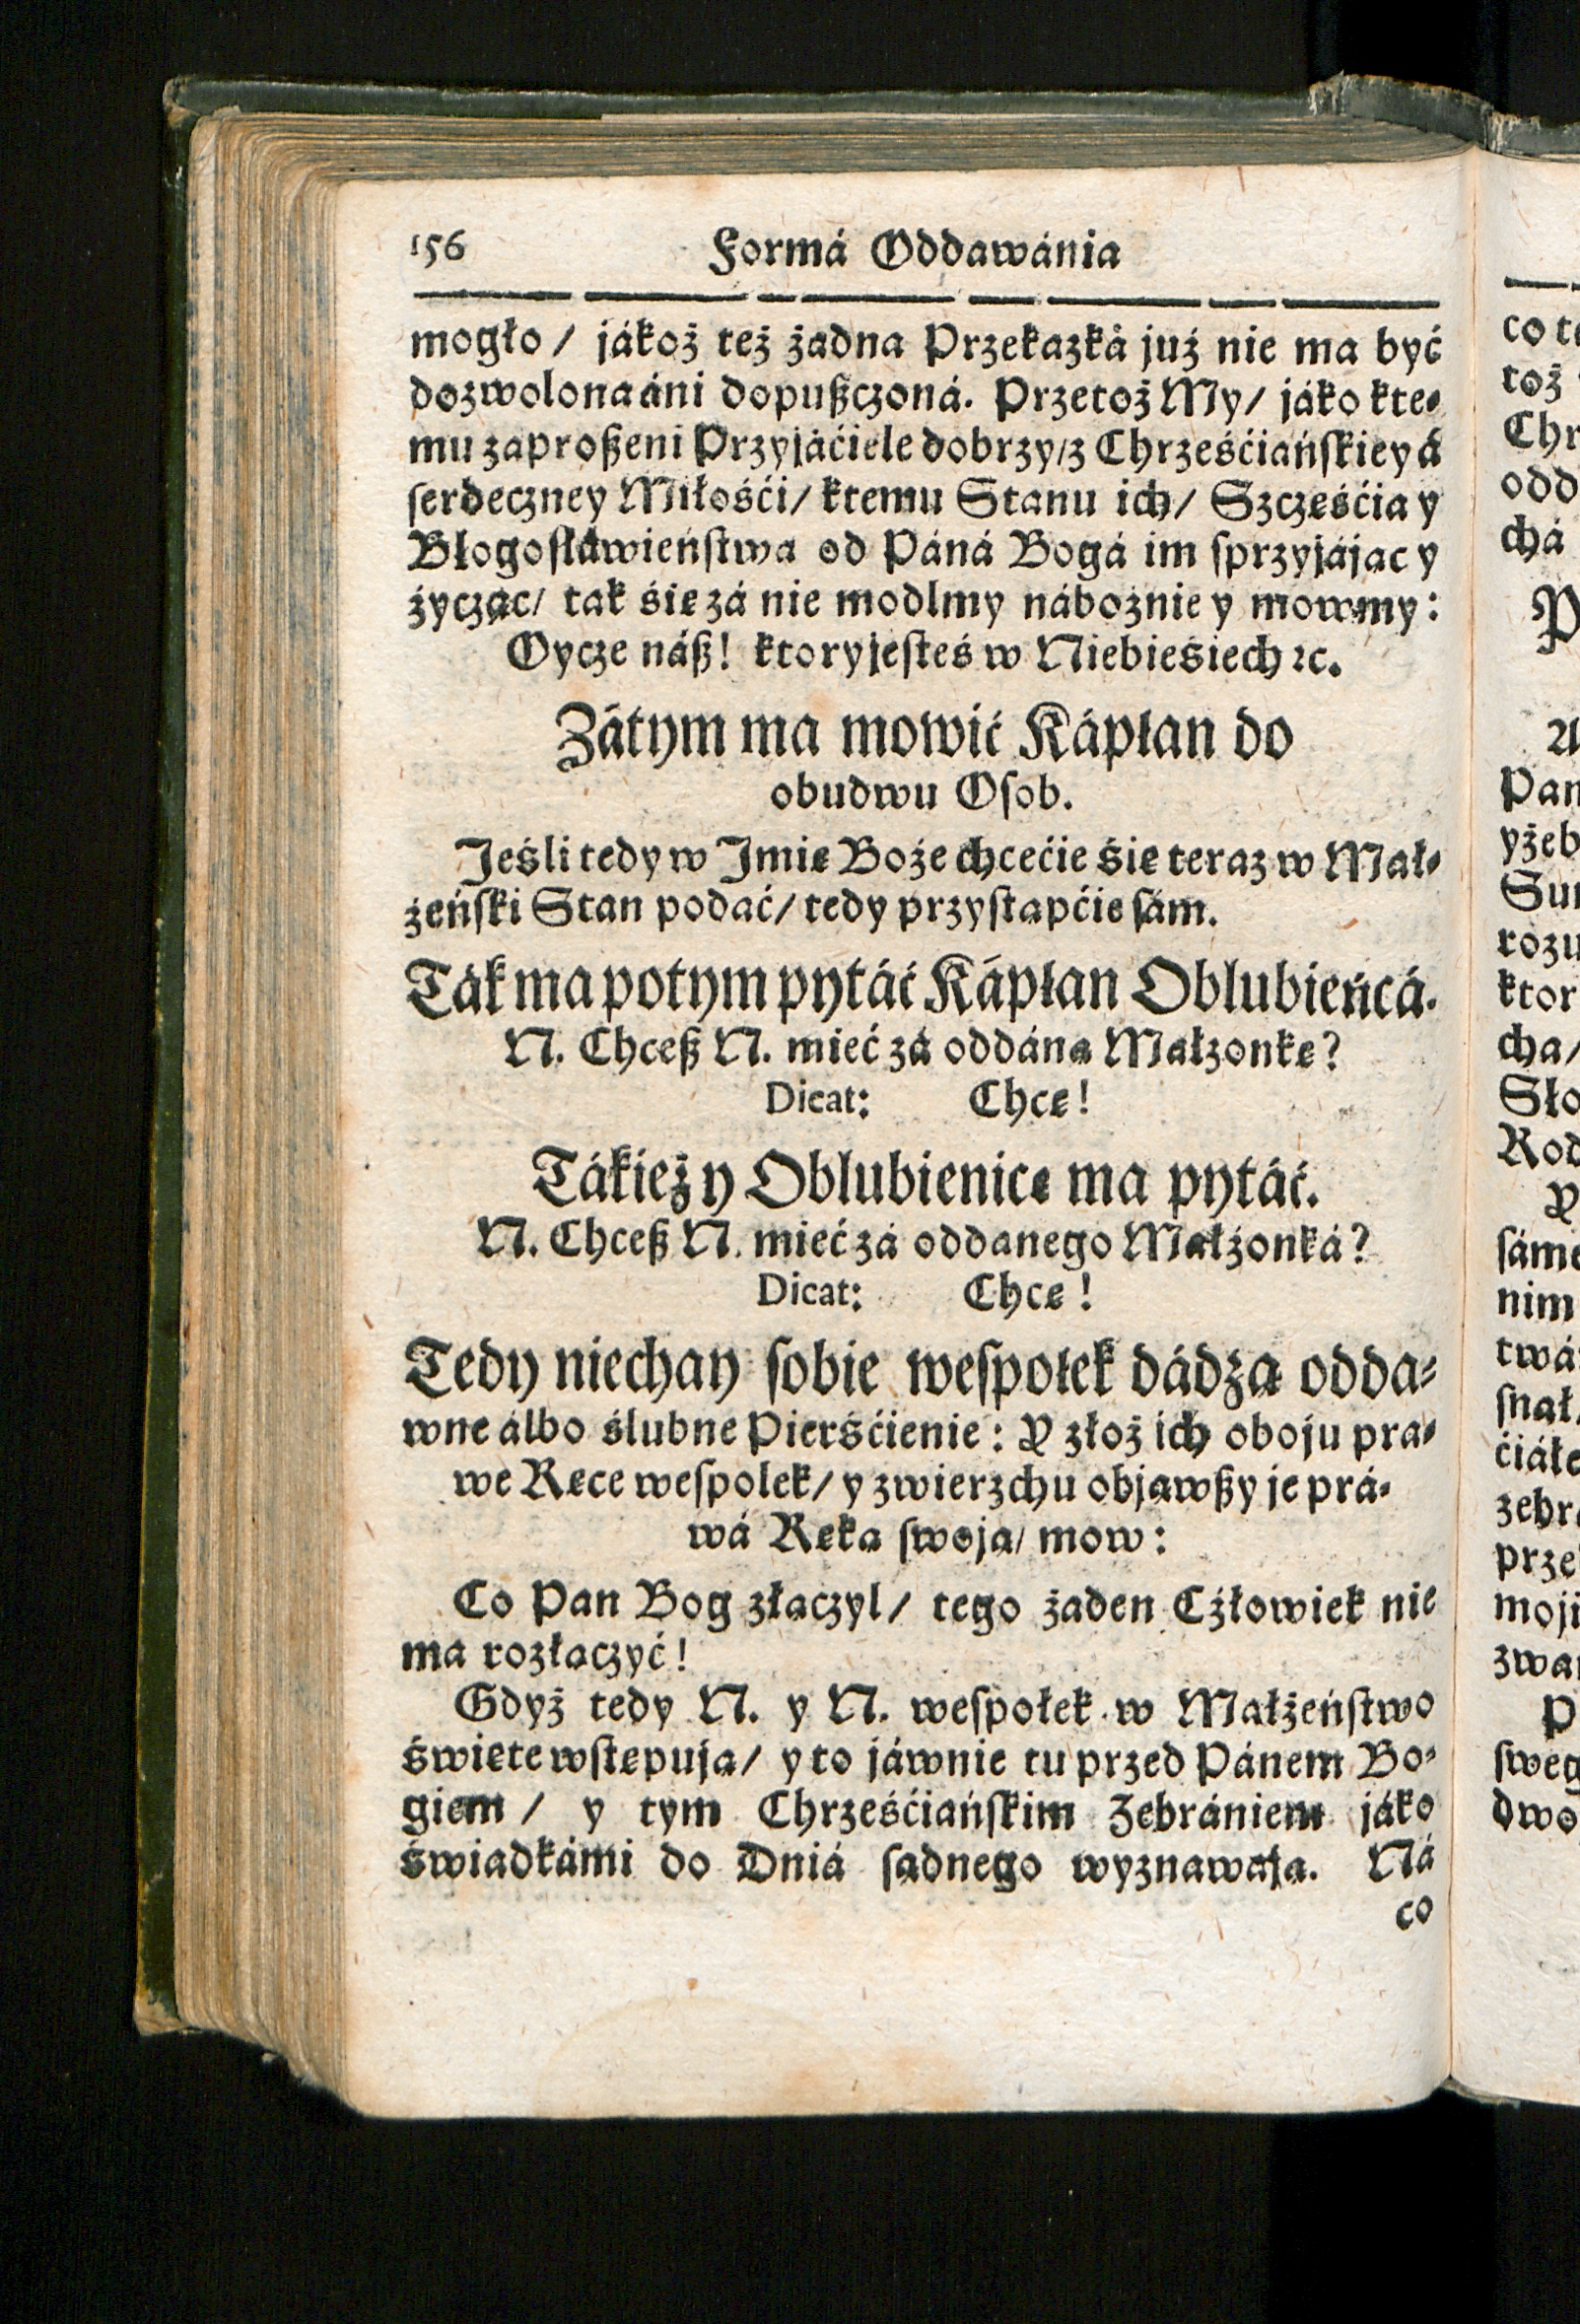 156 Formá Oddawánia
mogło / jákoż też żadna Przekazká już nie ma być
dozwolona áni dopußczoná. Przetoż My / jáko kte-
mu zaproßeni Przyjáćiele dobrzy / z Chrześćiańſkiey á
ſerdeczney Miłośći / ktemu Stanu ich / Szczęśćia y
Błogoſłáwieńſtwa od Páná Bogá im ſprzyjájąc y
życząc / tak śię zá nie modlmy nábożnie y mowmy:
Oycze náß! ktory jeſteś w Niebieśiech ꝛc.
Zátym ma mowić Kápłan do
obudwu Oſob.
Jeśli tedy w Jmię Boże chcećie śię teraz w Mał-
żeńſki Stan podać / tedy przyſtąpćie ſám.
Ták ma potym pytáć Kápłan Oblubieńcá.
N. Chceß N. mieć zá oddáną Małzonkę?
Dicat: Chcę!
Tákież y Oblubienicę ma pytáć.
N. Chceß N. mieć zá oddanego Małżonká?
Dicat: Chcę!
Tedy niechay ſobie weſpołek dádżą odda-
wne álbo ślubne Pierśćienie: Y złoż ich oboju pra-
we Ręce weſpolek / y zwierzchu objąwßy je prá-
wá Ręką ſwoją / mow:
Co Pan Bog złączyl / tego żaden Cżłowiek nie
ma rozłączyć!
Gdyż tedy N. y N. weſpołek w Małżeńſtwo
święte wſtępują / y to jáwnie tu przed Pánem Bo-
giem / y tym Chrześćiańſkim Zebrániem jáko
świadkámi do Dniá ſądnego wyznawają. Ná
co